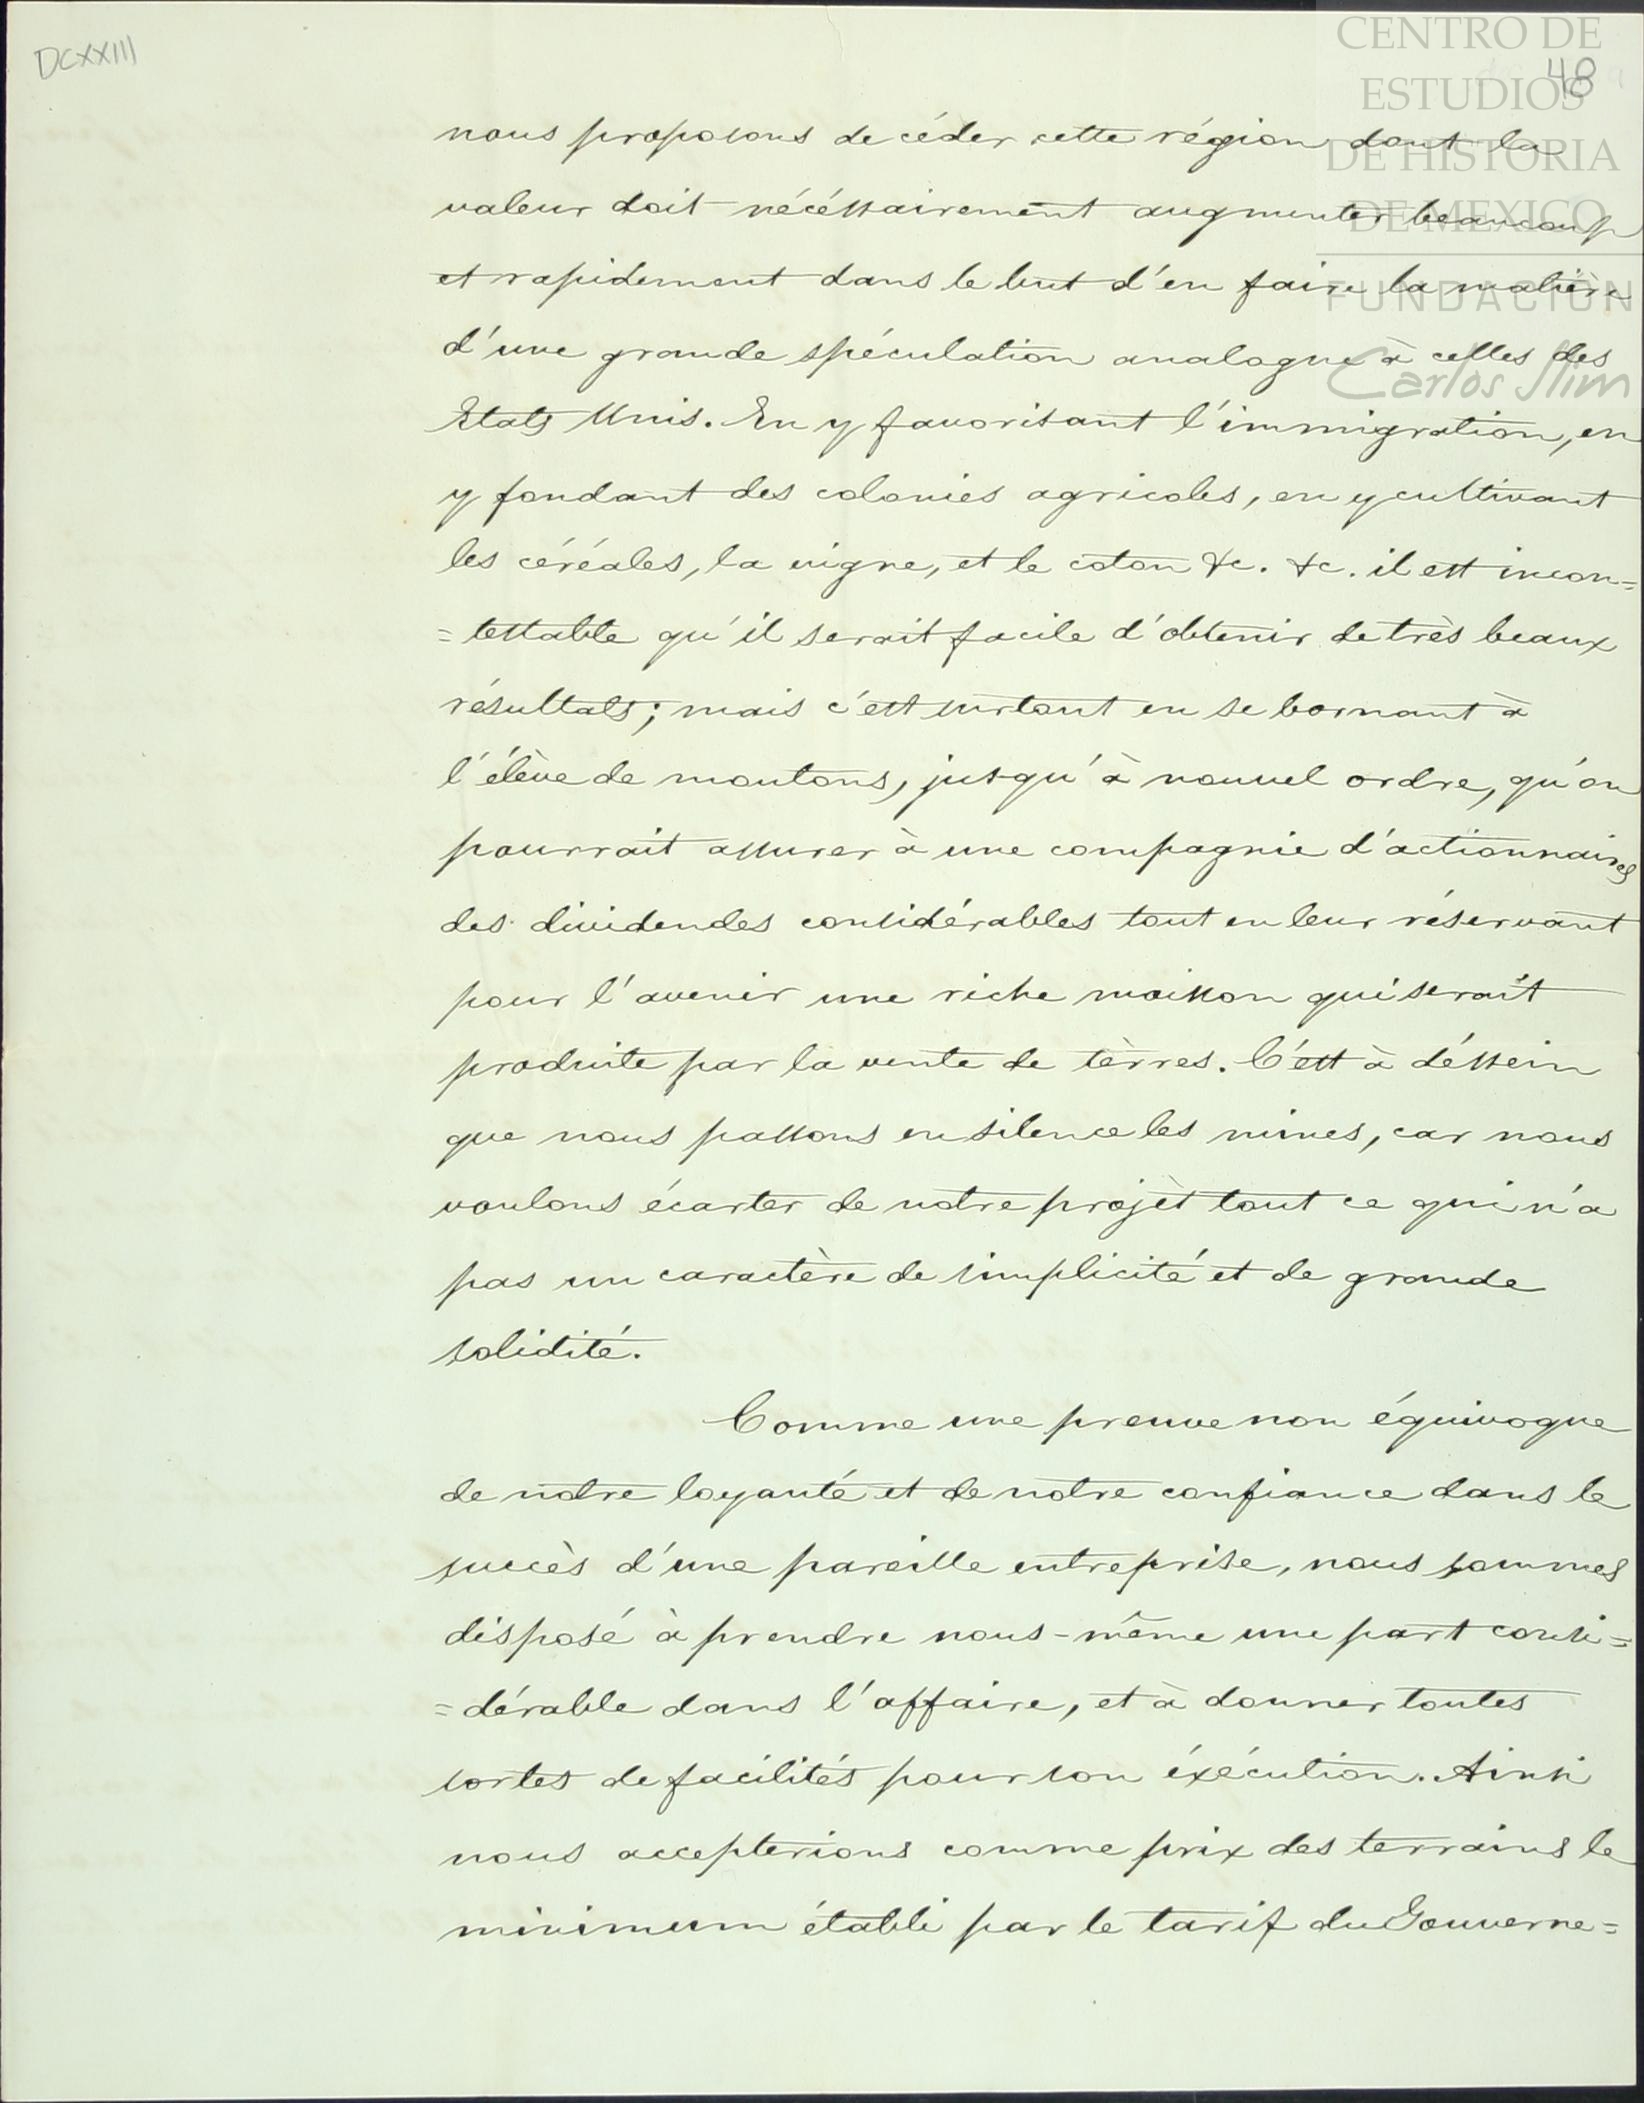 DCXXIII
48
CENTRO DE
ESTUDIOS
DE HISTORIA
DE MEXICO
FUNDACIÓN
Carlos Slim
nous proposons de céder cette région dont la
valeur doit nécéssairement augmenter beaucoup
et rapidement dans le but d'en faire la matière
d'une grande spéculation analogue à celles des
Etats Unis. En y favorisant l'immigration, en
y fondant des colonies agricoles, en y cultivant
les céréales, la vigne, et le coton &c. &c. il est incon=
=testable qu'il serait facile d'obtenir de très beaux
résultats; mais c'est surtout en se bornant à
l'élève de moutons, jusqu'à nouvel ordre, qu'on
pourrait assurer à une compagnie d'actionnaires
des dividendes considérables tout en leur réservant
pour l'avenir une riche moisson qui serait
produite par la vente de tèrres. C'est à déssein
que nous passons en silence les mines, car nous
voulons écarter de notre projèt tout ce qui n'a
pas un caractère de simplicité et de grande
solidité.
Comme une preuve non équivoque
de notre loyauté et de notre confiance dans le
succès d'une pareille entreprise, nous sommes
disposé à prendre nous-même une part consi=
=dérable dans l'affaire, et à donner toutes
sortes de facilités pour son éxécution. Ainsi
nous accepterions comme prix des terrains le
minimum établi par le tarif du Gouverne=